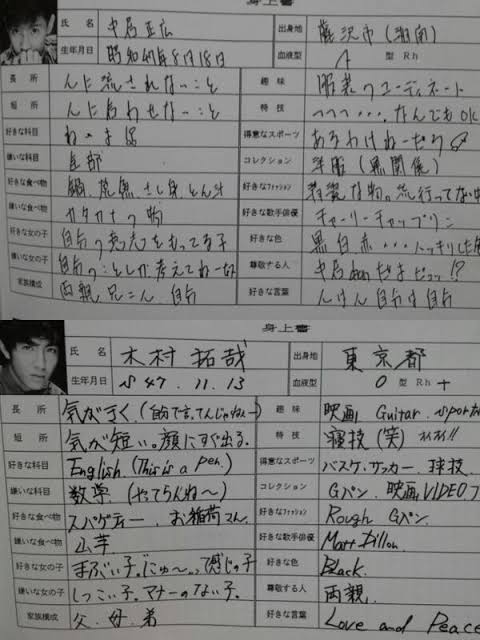 身上書
氏名 中居正広 出身地 藤沢市(湘南)
生年月日 昭和47年8月18日 血液型 A 型 Rh
長所 人に流されないこと 趣味 服装のコーディネート
短所 人に合わせないこと 特技 へへへ・・・なんでもOK
好きな科目 ねーよ 得意なスポーツ あるわけねーだろ
嫌いな科目 全部 コレクション 洋服(黒関係)
好きな食べ物 好きなファッション
嫌いな食べ物 カタカナの物 好きな歌手俳優 チャーリーチャップリン
好きな女の子 自分の意志をもってる子 好きな色 黒白赤・・・
嫌いな女の子 自分のことしか考えてねーな 尊敬する人 中居
家族構成 両親 兄二人 自分 好きな言葉 自分は自分
身上書
氏名 木村拓哉 出身地 東京都
生年月日 S47.11.13 血液型 O 型 Rh +
長所 気がきく。(自分で言ってんじゃねぇー) 趣味 映画 Guitar. sports
短所 気が短い。顔にすぐ出る。 特技 寝技(笑)
好きな科目 English (This is a pen.) 得意なスポーツ バスケ.サッカー. 球技
嫌いな科目 数学(やってらんね〜) コレクション Gパン.映画VIDEO
好きな食べ物 スパゲティー. お稲荷さん. 好きなファッション Rough Gパン.
嫌いな食べ物 山芋 好きな歌手俳優 Matt Dillon.
好きな女の子 まぶい子。にゅ〜って感じの子 好きな色 Black.
嫌いな女の子 しつこい子。マナーのない子。 尊敬する人 両親.
家族構成 父.母.弟 好きな言葉 Love and Peace